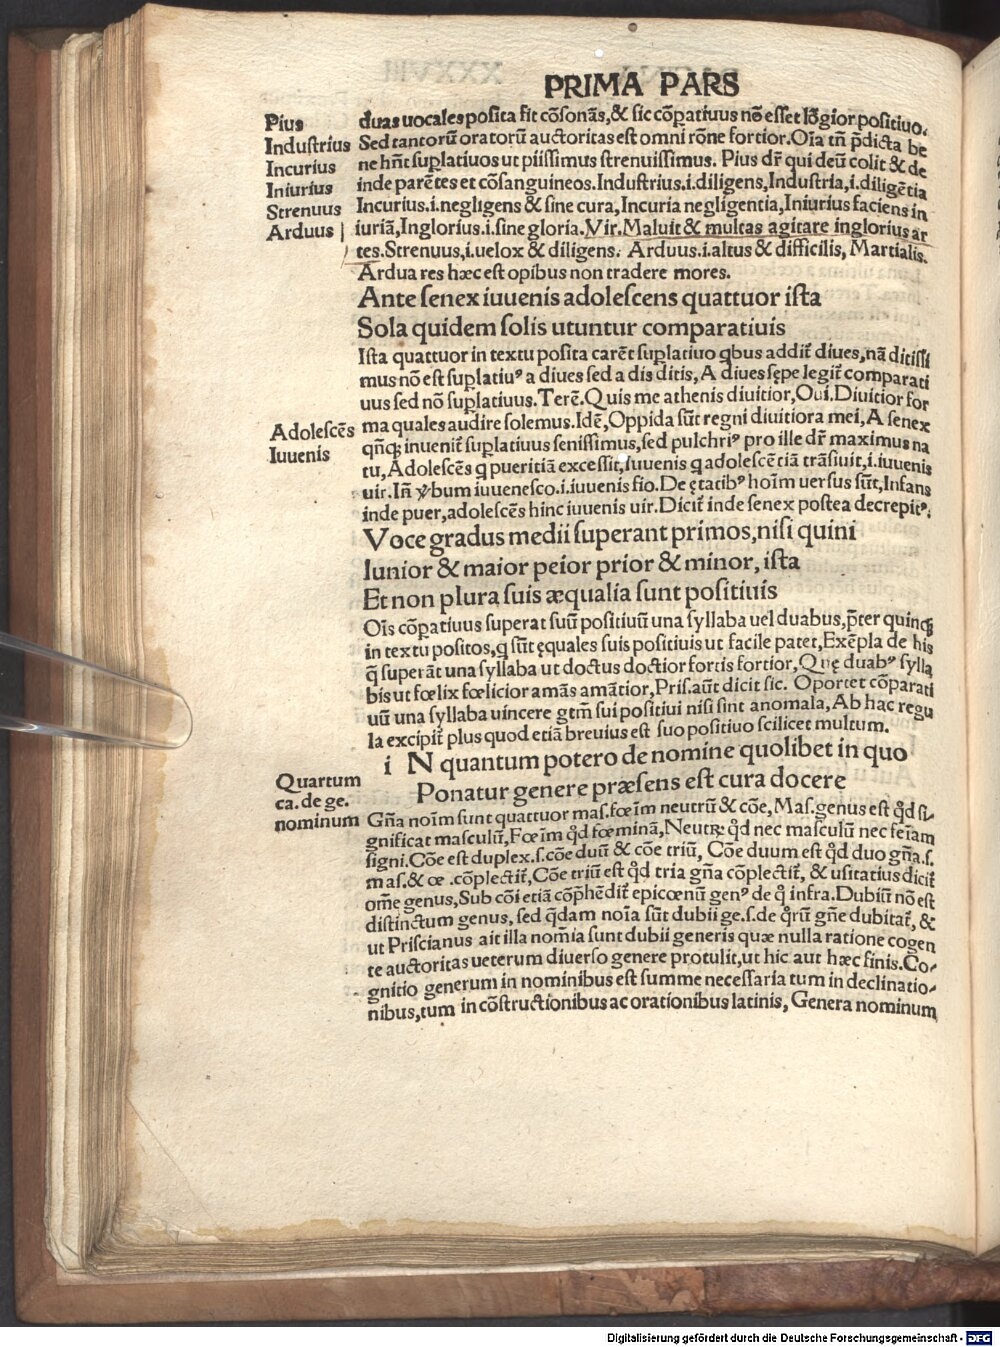 PRIMA PARS
Pius
Industrius
Incurius
Iniurius
Strenuus
Arduus
duas uocales posita fit cōsonās,& sic cōpatiuus nō esset lōgior positiuo.
Sed tantorū oratorū auctoritas est omni rōne fortior.Oīa tñ p̄dicta be
ne hñt suplatiuos ut piissimus strenuissimus. Pius dr̄ qui deū colit & de
inde parētes et cōsanguineos.Industrius.i.diligens,Industria,i.diligētia
Incurius.i.negligens & sine cura,Incuria negligentia,Iniurius faciens in
iuriā,Inglorius.i.sine gloria.Vir.Maluit & multas agitare inglorius ar
tes.Strenuus,i.uelox & diligens. Arduus.i.altus & difficilis, Martialis.
Ardua res hæc est opibus non tradere mores.
Ante senex iuuenis adolescens quattuor ista
Sola quidem solis utuntur comparatiuis
Adolescēs
Iuuenis
Ista quattuor in textu posita carēt suplatiuo qbus addit̄ diues,nā ditissi
mus nō est suplatiuꝰ a diues sed a dis ditis, A diues sępe legit̄ comparati
uus sed nō suplatiuus. Terē.Quis me athenis diuitior,Oui.Diuitior for
ma quales audire solemus.Idē,Oppida sūt regni diuitiora mei,A senex
qñqꝫ inuenit̄ suplatiuus senissimus,sed pulchriꝰ pro ille dr̄ maximus na
tu,Adolescēs q pueritiā excessit,Iuuenis q adolescētiā trāsiuit,i.iuuenis
uir.Iñ ꝟbum iuuenesco.i.iuuenis fio.De ętatibꝰ hoīm uersus sūt,Infans
inde puer,adolescēs hinc iuuenis uir.Dicit̄ inde senex postea decrepitꝰ.
Voce gradus medii superant primos,nisi quini
Iunior & maior peior prior & minor, ista
Et non plura suis æqualia sunt positiuis
Oīs cōpatiuus superat suū positiuū una syllaba uel duabus,p̄ter quinqꝫ
in textu positos,q sūt ęquales suis positiuis ut facile patet,Exēpla de his
q̄ superāt una syllaba ut doctus doctior fortis fortior,Quę duabꝰ sylla
bis ut fœlix fœlicior amās amātior,Pris.aūt dicit sic. Oportet cōparati
uū una syllaba uincere gtm̄ sui positiui nisi sint anomala,Ab hac regu
la excipit̄ plus quod etiā breuius est suo positiuo scilicet multum.
Quartum
ca.de ge.
nominum
i N quantum potero de nomine quolibet in quo
Ponatur genere præsens est cura docere
Gña noīm sunt quattuor mas.fœīm neutrū & cōe, Mas.genus est qd̄ si-
gnificat masculū,Fœīm qd̄ fœminā,Neutꝝ qd̄ nec masculū nec feīam
signi.Cōe est duplex.s.cōe duū & cōe triū, Cōe duum est qd̄ duo gña.s.
mas.& œ.cōplectit̄,Cōe triū est qd̄ tria gña cōplectit̄, & usitatius dicit̄
om̄e genus,Sub cōi etiā cōp̄hēdit̄ epicœnū genꝰ de q̊ infra.Dubiū nō est
distinctum genus, sed q̄dam noīa sūt dubii ge.s.de qr̊ū gñe dubitat̄, &
ut Priscianus ait illa nom̄ia sunt dubii generis quæ nulla ratione cogen
te auctoritas ueterum diuerso genere protulit,ut hic aut hæc finis.Co-
gnitio generum in nominibus est summe necessaria tum in declinatio-
nibus,tum in cōstructionibus ac orationibus latinis, Genera nominum
Digitalisierung gefördert durch die Deutsche Forschungsgemeinschaft - DFG